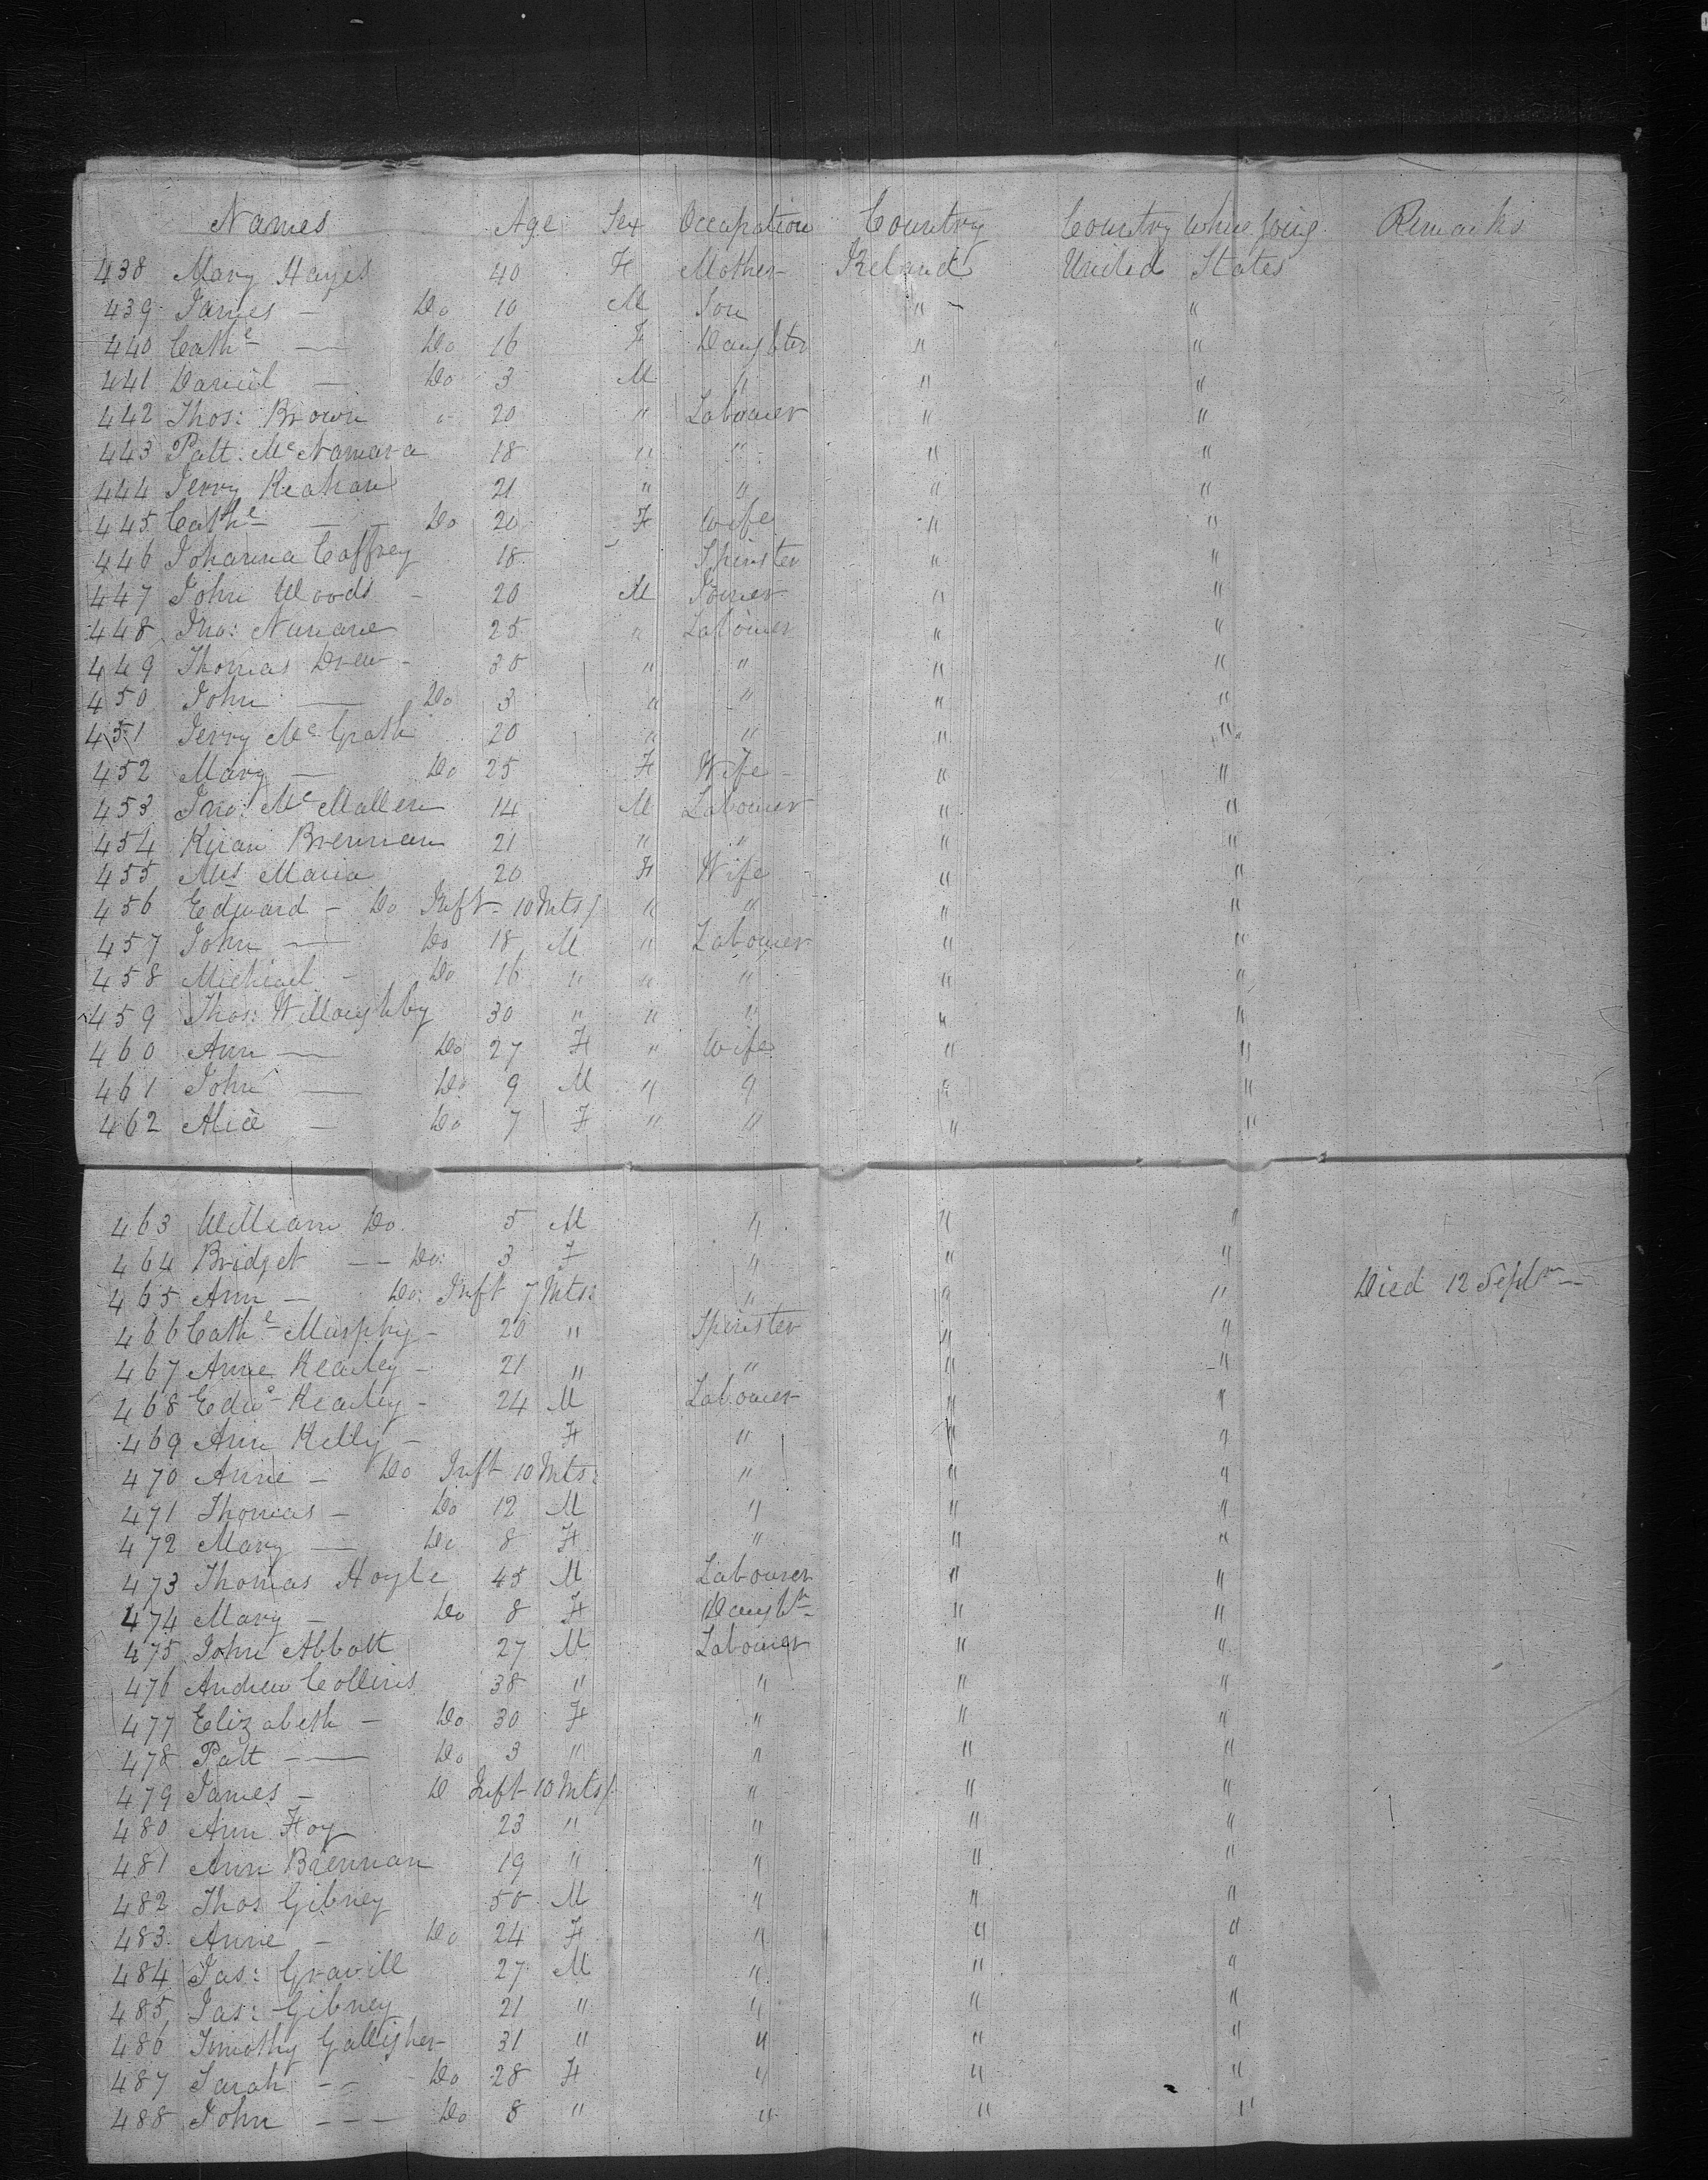 Names Age Sex Occupation Country Country where going Remarks
438 Mary Hayes 40 F Mother Ireland United States
439 James — Do 10 M Son " "
440 Cathe — Do 16 F Daughter " "
441 Daniel — Do 3 M " " "
442 Thos: Brown " 20 " Labourer " "
443 Patt. McNamara 18 " " " "
444 Jerry Keahan 21 " " " "
445 Cathe — Do 20 F Wife " "
446 Johanna Caffrey 18 " Spinster " "
447 John Woods - 20 M Joiner " "
448 Jno: Nunane 25 " Labourer " "
449 Thomas Drew - 30 " " " "
450 John — Do 3 " " " "
451 Jerry McGrath 20 " " " "
452 Mary — Do 25 F Wife - " "
453 Jno: McMullen 14 M Labourer " "
454 Kyran Brennan 21 " " " "
455 Mrs Maria 20 F Wife " "
456 Edward - Do Inft - 10 Mts/ " " " "
457 John — Do 18 M " Labourer " "
458 Michael - Do 16 " " " " "
459 Thos: Willoughby 30 " " " " "
460 Ann — Do 27 F " Wife " "
461 John — Do 9 M " " " "
462 Alice — Do 7 F " " " "
463 William Do. 5 M " " "
464 Bridget — Do: 3 F " " "
465 Ann — Do: Inft 7 Mts: " " " Died 12 Septr —
466 Cathe Murphy - 20 " Spinster " "
467 Anne Kearley - 21 " " " "
468 Edwd Kearley - 24 M Labourer " "
469 Ann Kelly - F " " "
470 Anne - Do Inft 10 Mts: " " "
471 Thomas - Do 12 M " " "
472 Mary — Do 8 F " " "
473 Thomas Hoyle 45 M Labourer " "
474 Mary - Do 8 F Daughtr " "
475 John Abbott 27 M Labourer " "
476 Andrew Collins 38 " " " "
477 Elizabeth - Do 30 F " " "
478 Patt — Do 3 " " " "
479 James - D Inft - 10 Mts/. " " "
480 Ann Foy 23 " " " "
481 Ann Brennan 19 " " " "
482 Thos Gibney 50 M " " "
483 Anne - Do 24 F " " "
484 Jas: Gravill 27 M " " "
485 Jas: Gibney 21 " " " "
486 Timothy Galligher 31 " " " "
487 Sarah -- Do 28 F " " "
488 John --- Do 8 " " " "